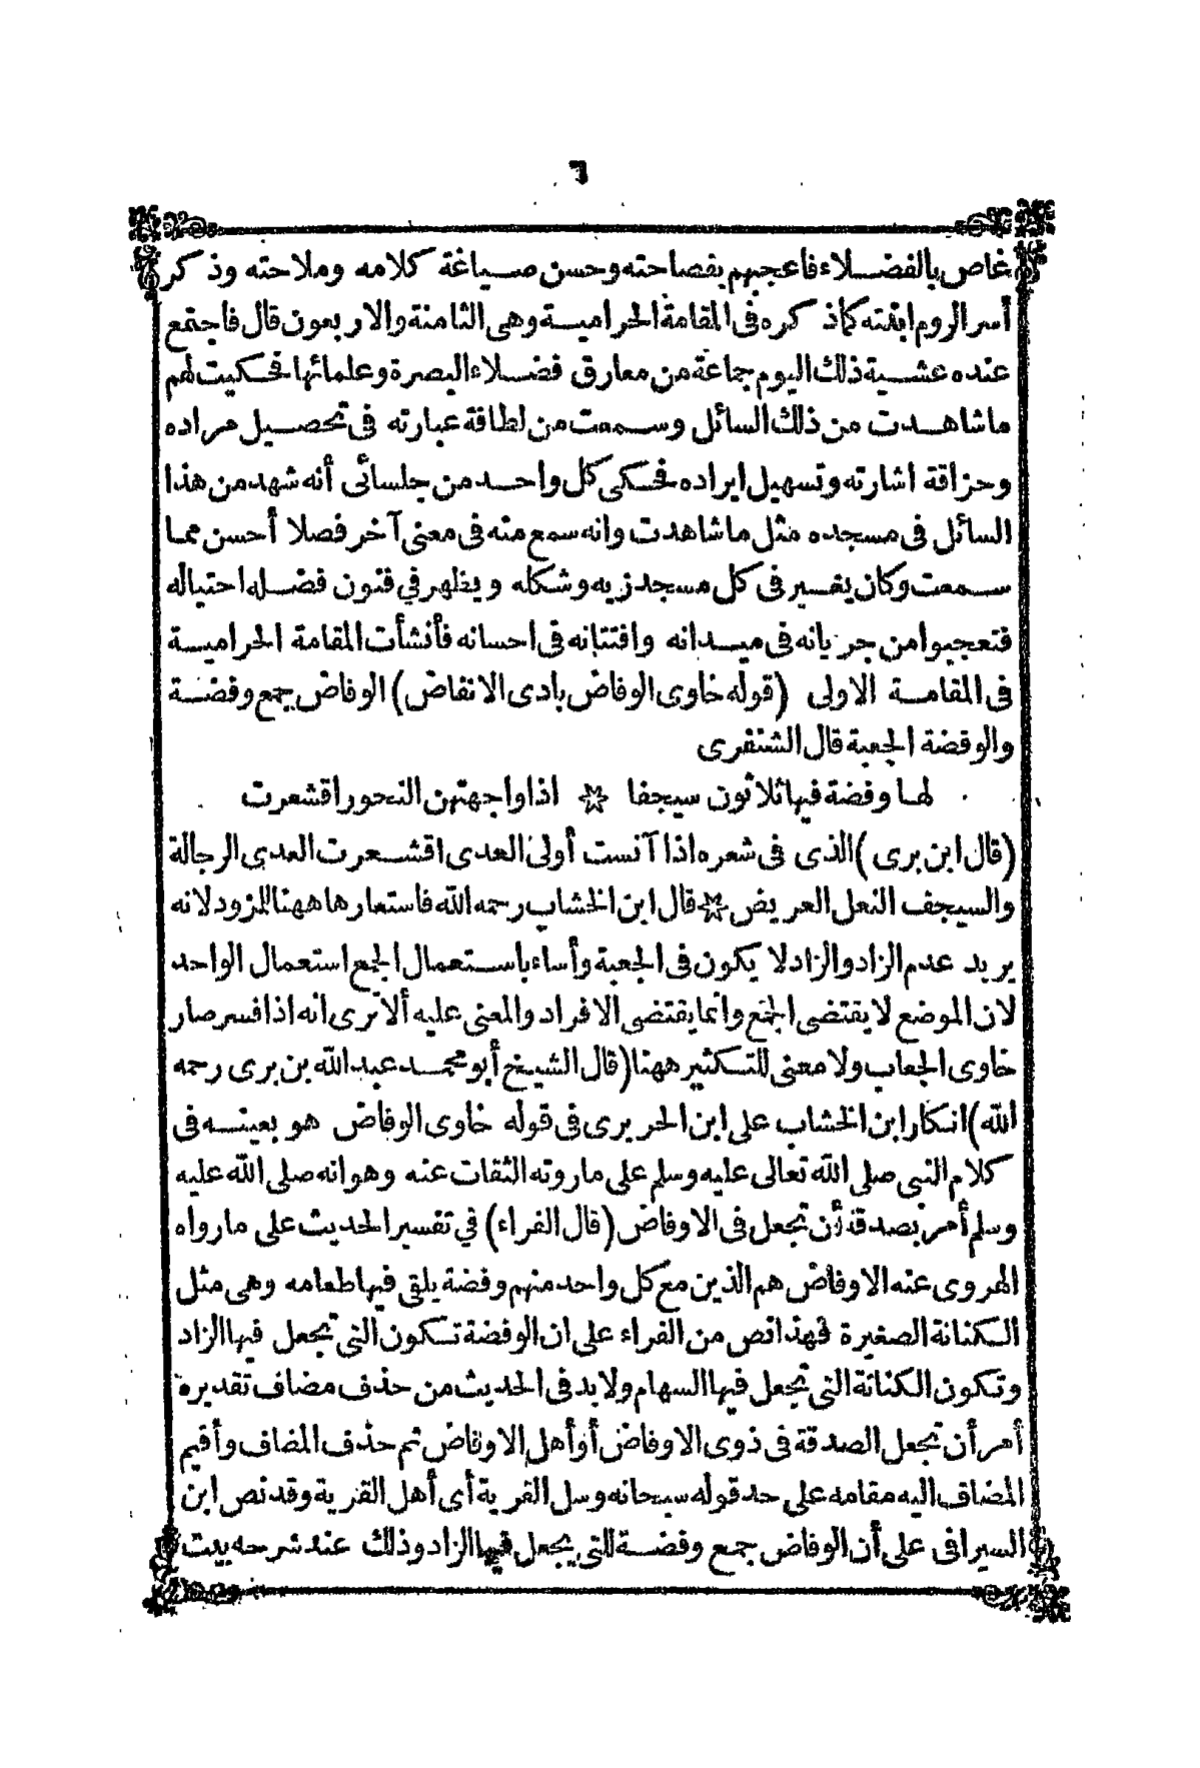 ٦
غاص بالفضلاء فاعجبهم بفصاحته وحسن صياغة كلامه وملاحته وذكر
أسر الروم ابنته كما ذكره فى المقامة الحرامية وهى الثامنة والاربعون قال فاجتمع
عنده عشية ذلك اليوم جماعة من معارق فضلاء البصرة وعلمائها فحكيت لهم
ما شاهدت من ذلك السائل وسمعت من لطافة عبارته فى تحصيل مراده
وحزاقة اشارته وتسهيل ايراده فحكى كل واحد من جلسائى أنه شهد من هذا
السائل فى مسجده مثل ما شاهدت وانه سمع منه فى معنى آخر فصلا أحسن مما
سمعت وكان يغير فى كل مسجد زيه وشكله ويظهر في فنون فضله احتياله
فتعجبوا من جريانه فى ميدانه وافتتانه فى احسانه فأنشأت المقامة الحرامية
فى المقامة الاولى (قوله خاوى الوفاض بادى الانفاض) الوفاض جمع وفضة
والوفضة الجعبة قال الشنفرى
لها وفضة فيها ثلاثون سيجفا ☆ اذا واجهتهن النحور اقشعرت
(قال ابن برى) الذى فى شعره اذا آنست أولى العدى اقشعرت العدى الرجالة
والسيجف النعل العريض ☆ قال ابن الخشاب رحمه الله فاستعارها ههنا للمزود لانه
يريد عدم الزاد والزاد لا يكون فى الجعبة وأساء باستعمال الجمع استعمال الواحد
لان الموضع لا يقتضى الجمع وانما يقتضى الافراد والمعنى عليه ألا ترى انه اذا فسر صار
خاوى الجعاب ولا معنى للتكثير ههنا (قال الشيخ أبو محمد عبد الله بن برى رحمه
الله) انكار ابن الخشاب على ابن الحريرى فى قوله خاوى الوفاض هو بعينه فى
كلام النبى صلى الله تعالى عليه وسلم على ما روته الثقات عنه وهو انه صلى الله عليه
وسلم أمر بصدقة أن تجعل فى الاوفاض (قال الفراء) في تفسير الحديث على ما رواه
الهروى عنه الاوفاض هم الذين مع كل واحد منهم وفضة يلقى فيها طعامه وهى مثل
الكنانة الصغيرة فهذا نص من الفراء على ان الوفضة تكون التى تجعل فيها الزاد
وتكون الكنانة التى تجعل فيها السهام ولا بد فى الحديث من حذف مضاف تقديره
أمر أن تجعل الصدقة فى ذوى الاوفاض أو أهل الاوفاض ثم حذف المضاف وأقيم
المضاف اليه مقامه على حد قوله سبحانه وسل القرية أى أهل القرية وقد نص ابن
السيرافى على أن الوفاض جمع وفضة للتى يجعل فيها الزاد وذلك عند شرحه بيت